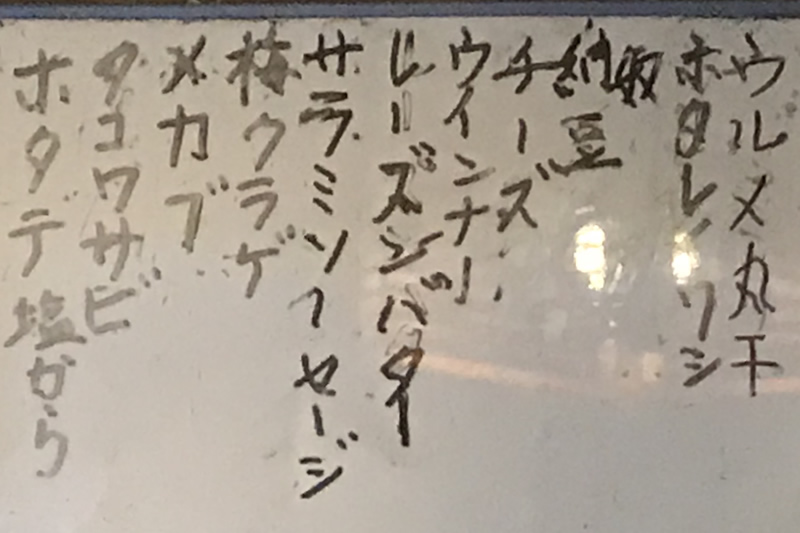 ウルメ丸干
ホタレイワシ
納豆
チーズ
ウインナー
レーズンバター
サラミソーセージ
梅クラゲ
メカブ
タコワサビ
ホタテ塩から